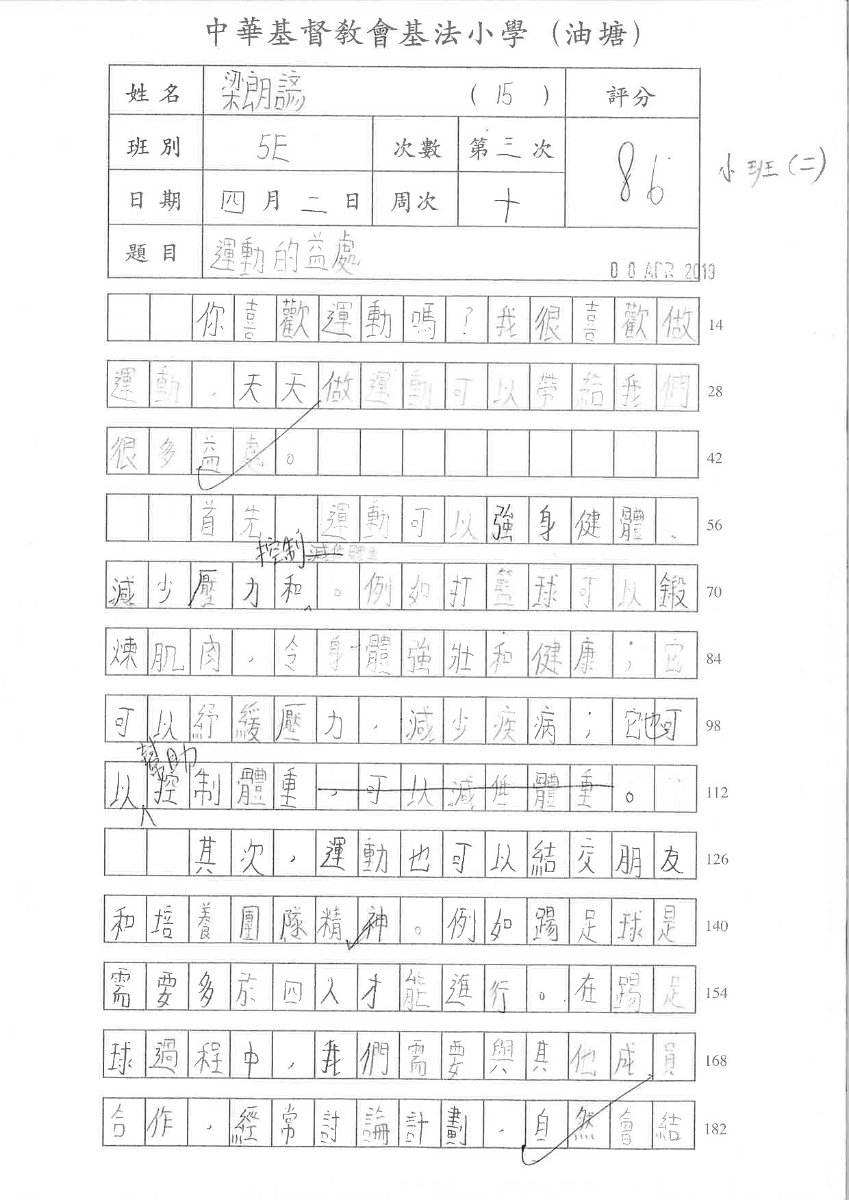 中華基督教會基法小學（油塘）
姓名 梁朗諺 （15） 評分
班別 5E 次數 第三次 86 小班（二）
日期 四月二日 周次 十
題目 運動的益處
08 APR 2019
你喜歡運動嗎？我很喜歡做 14
運動，天天做運動可以帶給我們 28
很多益處。 42
首先，運動可以強身健體、 56
控制
減少壓力和。例如打籃球可以鍛 70
煉肌肉，令身體強壯和健康；它 84
可以紓緩壓力，減少疾病；它也可 98
幫助
以控制體重，可以減低體重。 112
其次，運動也可以結交朋友 126
和培養團隊精神。例如踢足球是 140
需要多於四人才能進行。在踢足 154
球過程中，我們需要與其他成員 168
合作，經常討論計劃，自然會結 182